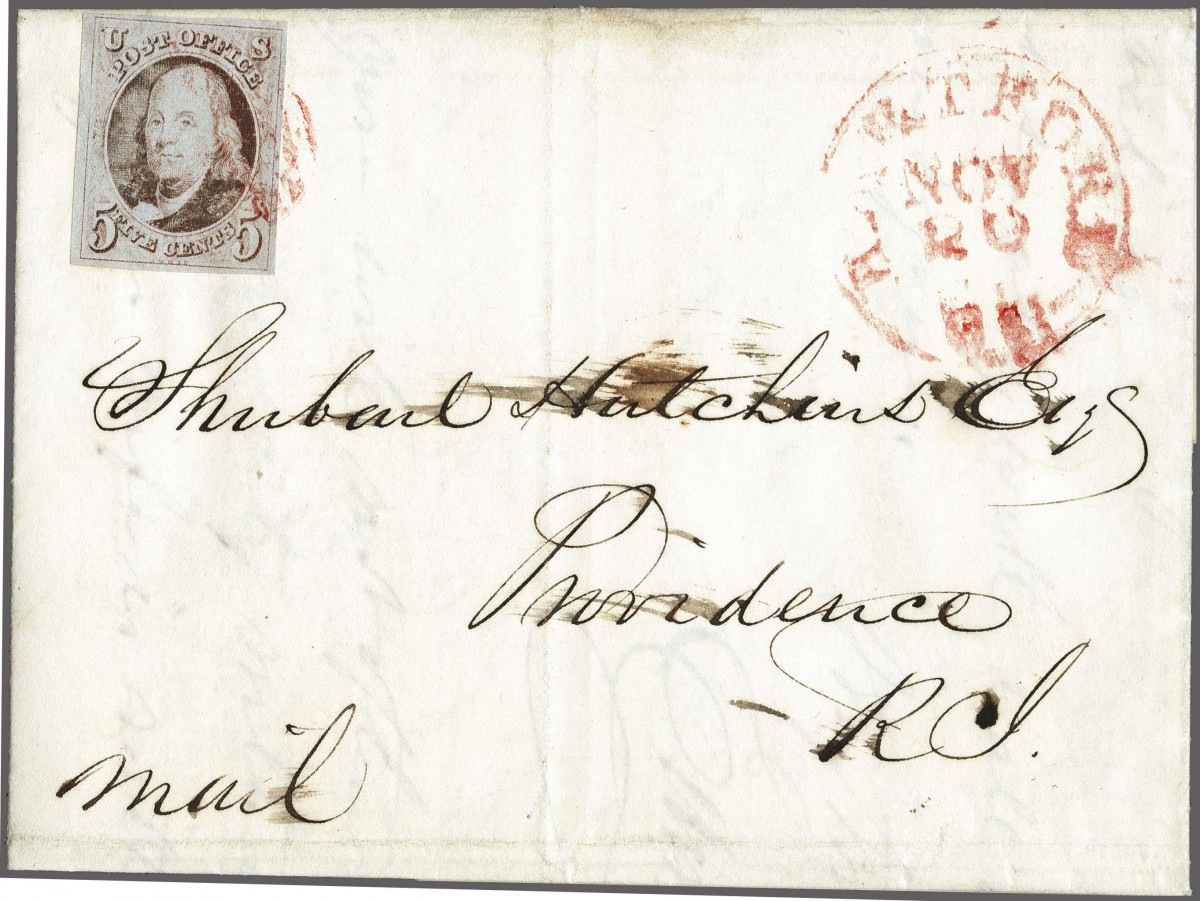 U S
POST OFFICE
5 FIVE CENTS 5
HARTFORD
NOV
Shubael Hutchins Esq
Providence
R I.
mail